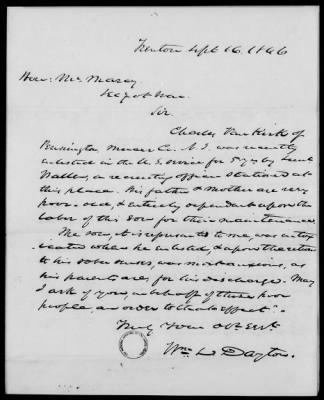 Trenton Sept 16. 1846
Hon: Mr Marcy
Sec of War
Sir
Charles Van Kirk of
Mercer Co. N J. was recently
enlisted in the U. S service for 5 yrs by Lieut
a recruiting officer stationed at
this place. His father & mother are very
poor - & entirely dependent upon the
labor of this son for their maintenance.
The son, it is represented to me, was intox-
icated when he enlisted, & upon the return
to his sober senses, was as
his parents are, for his discharge. May
I ask of you, in behalf of these poor
people, an order to that effect".
Truly Your Obt Servt.
Wm L Dayton.